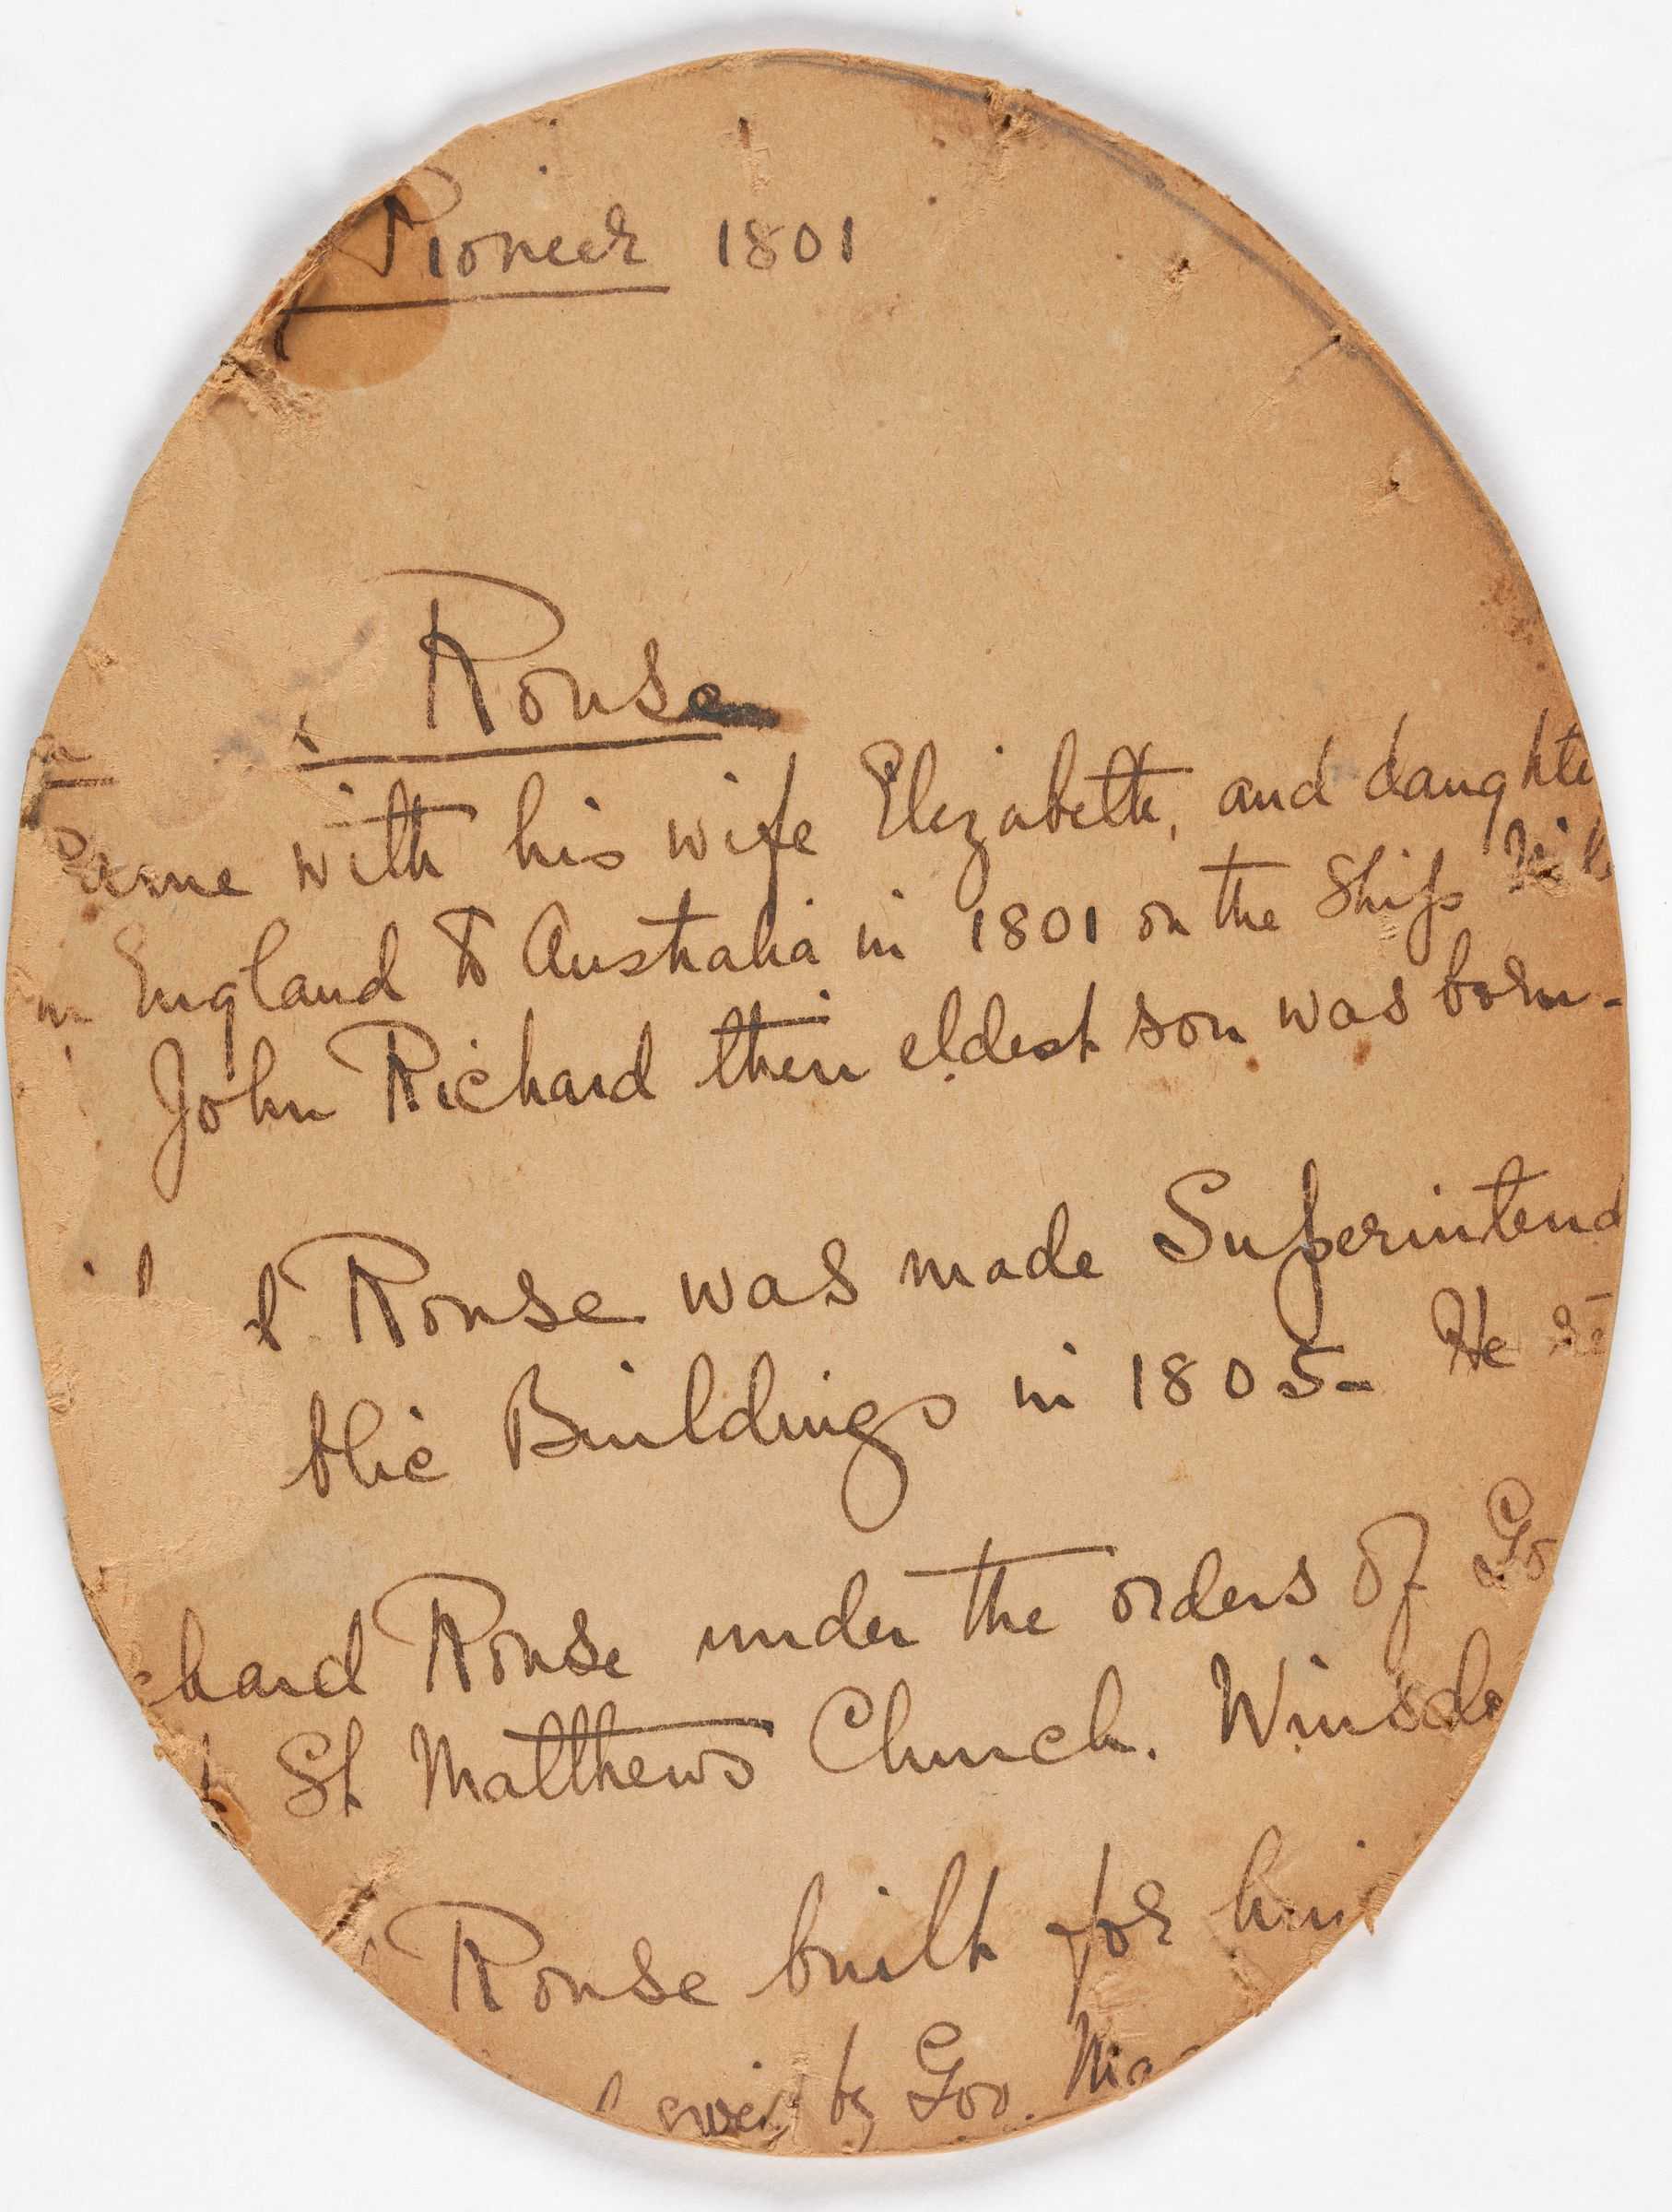 Pioneer 1801
Rouse
Came with his wife Elizabeth, and daughte
m England to Australia in 1801 on the Ship
John Richard their eldest son was born -
Rouse was made Superintend
blic Buildings in 1805 - He
chard Rouse under the orders of Go
St Matthews Church. Windso
Rouse built for him
by Gov. Mac